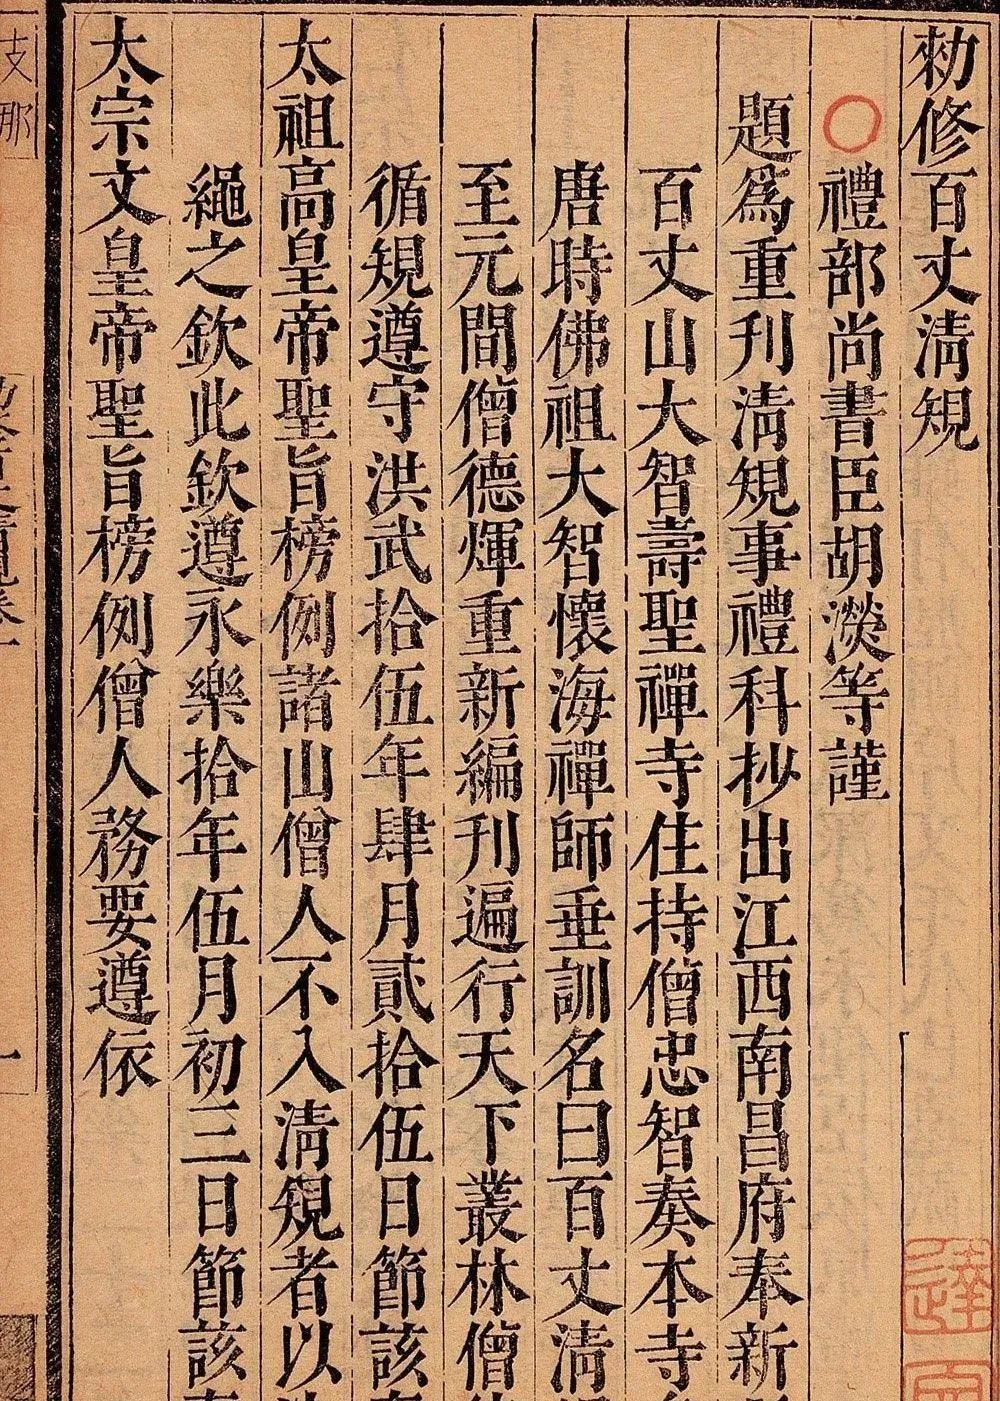 勑修百丈清規
禮部尚書臣胡濙等謹
題爲重刋清規事禮科抄出江西南昌府奉新
百丈山大智壽聖禪寺住持僧忠智奏本寺
唐時佛祖大智懷海禪師垂訓名曰百丈清
至元間僧德煇重新編刋遍行天下叢林僧
循規遵守洪武拾伍年肆月貳拾伍日節該
太祖高皇帝聖旨榜例諸山僧人不入清規者以
繩之欽此欽遵永樂拾年伍月初三日節該
太宗文皇帝聖旨榜例僧人務要遵依
支那
一